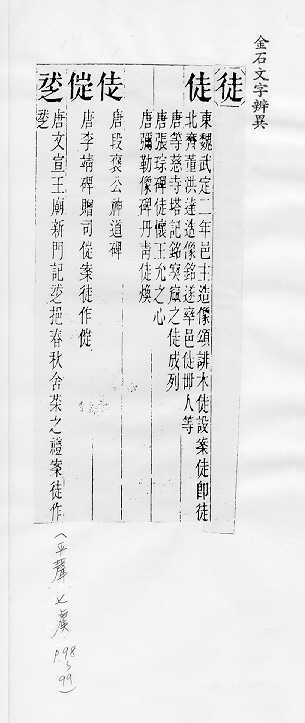 金石文字辨異
徒
徒 東魏武定二年邑主造像頌誹木徒設案徒即徒
北齊董洪達造像銘遂率邑徒卌人等
唐等慈寺塔記銘窮寇之徒成列
唐張琮碑徒懷王允之心
唐彌勒像碑丹青徒煥
唐段褒公神道碑
唐李靖碑贈司
唐文宣王廟新門記
春秋舍菜之禮案徒作
(平聲 七虞
P.98
99)